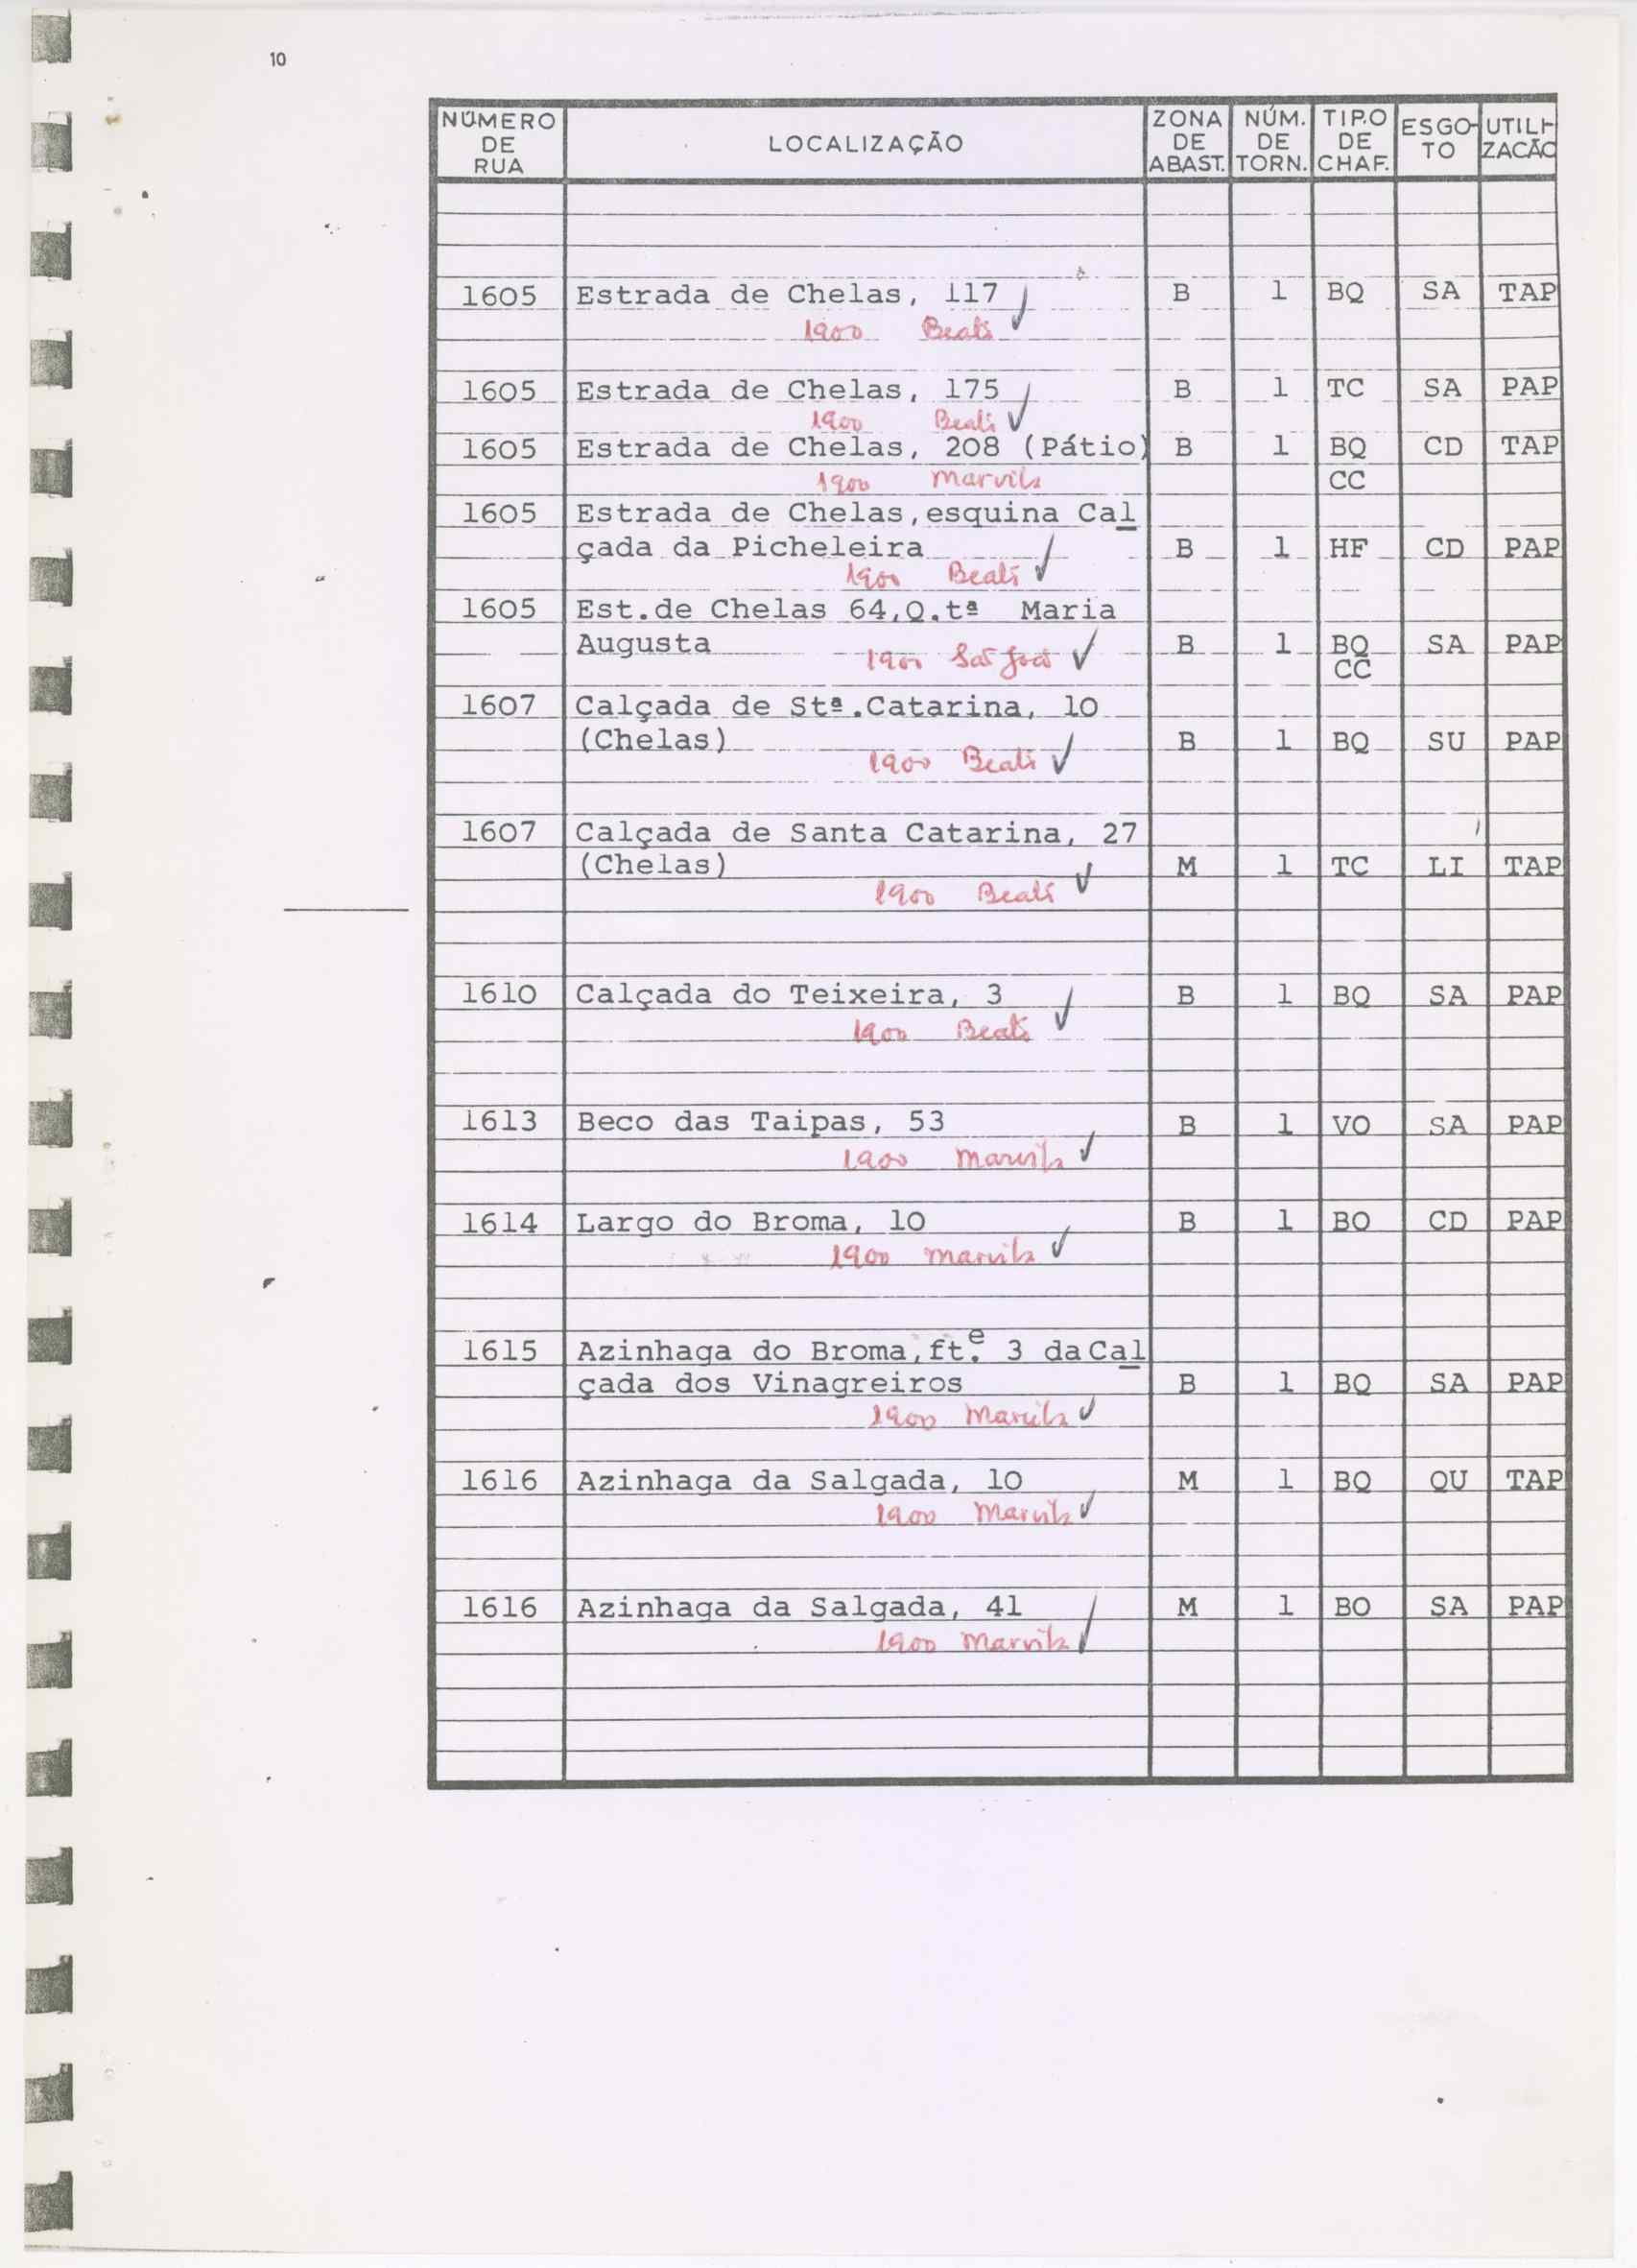 10
NÚMERO DE RUA LOCALIZAÇÃO ZONA DE ABAST. NÚM. DE TORN. TIPO DE CHAF. ESGO-TO UTILI-ZAÇÃO
1605 Estrada de Chelas, 117 B 1 BQ SA TAP
1900 Beato
1605 Estrada de Chelas, 175 B 1 TC SA PAP
1900 Beato
1605 Estrada de Chelas, 208 (Pátio) B 1 BQ CD TAP
1900 Marvila CC
1605 Estrada de Chelas,esquina Cal
çada da Picheleira B 1 HF CD PAP
1900 Beato
1605 Est.de Chelas 64,Q.tª Maria
Augusta B 1 BQ SA PAP
1900 São João CC
1607 Calçada de Stª.Catarina, 10
(Chelas) B 1 BQ SU PAP
1900 Beato
1607 Calçada de Santa Catarina, 27
(Chelas) M 1 TC LI TAP
1900 Beato
1610 Calçada do Teixeira, 3 B 1 BQ SA PAP
1900 Beato
1613 Beco das Taipas, 53 B 1 VO SA PAP
1900 Marvila
1614 Largo do Broma, 10 B 1 BO CD PAP
1900 Marvila
1615 Azinhaga do Broma,ft.e 3 da Cal
çada dos Vinagreiros B 1 BQ SA PAP
1900 Marvila
1616 Azinhaga da Salgada, 10 M 1 BQ QU TAP
1900 Marvila
1616 Azinhaga da Salgada, 41 M 1 BO SA PAP
1900 Marvila